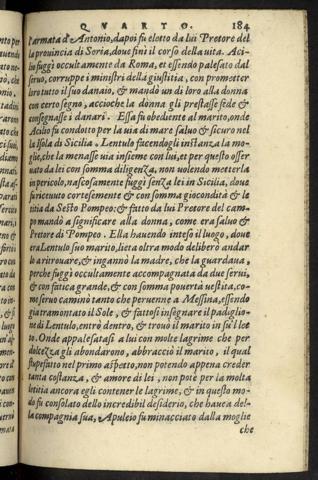 QVARTO. 184
l'armata d'Antonio, dapoi fu eletto da lui Pretore del
la prouincia di Soria, doue finì il corso della uita. Aci-
lio fuggì occultamente da Roma, et essendo palesato dal
seruo, corruppe i ministri della giustitia, con prometter
loro tutto il suo danaio, & mandò un di loro alla donna
con certo segno, accioche la donna gli prestasse fede &
consegnasse i danari. Essa fu obediente al marito, onde
Acilio fu condotto per la uia di mare saluo & sicuro nel
la Isola di Sicilia. Lentulo facendogli instanza la mo-
glie, che la menasse uia insieme con lui, et per questo osser
uato da lei con somma diligenza, non uolendo metterla
in pericolo, nascosamente fuggì senza lei in Sicilia, doue
fu riceuuto cortesemente & con somma giocondità & le
titia da Sesto Pompeo; & fatto da lui Pretore del cam-
po mandò a significare alla donna, come era saluo &
Pretore di Pompeo. Ella hauendo inteso il luogo, doue
era Lentulo suo marito, lieta oltra modo deliberò andar
lo a ritrouare, & ingannò la madre, che la guardaua,
perche fuggì occultamente accompagnata da due serui,
& con fatica grande, & con somma pouertà uestita, co-
me seruo caminò tanto che peruenne a Messina, essendo
gia tramontato il Sole, & fattosi insegnare il padiglio-
ne di Lentulo, entrò dentro, & trouò il marito in su'l let
to. Onde appalesatasi a lui con molte lagrime che per
dolcezza gli abondarono, abbracciò il marito, il qual
stupefatto nel primo aspetto, non potendo appena creder
tanta costanza, & amore di lei, non potè per la molta
letitia ancora egli contener le lagrime, & in questo mo-
do fu consolato dello incredibil desiderio, che haueua del-
la compagnia sua, Apuleio fu minacciato dalla moglie
che